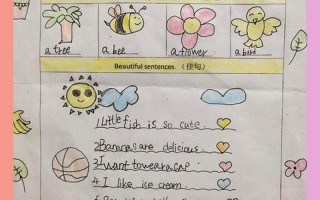 a tree a bee a flower a bird
Beautiful sentences. (佳句)
1.Little fish is so cute.
2Bananas are delicious.
3I want to wear a cap.
4. I like ice cream.